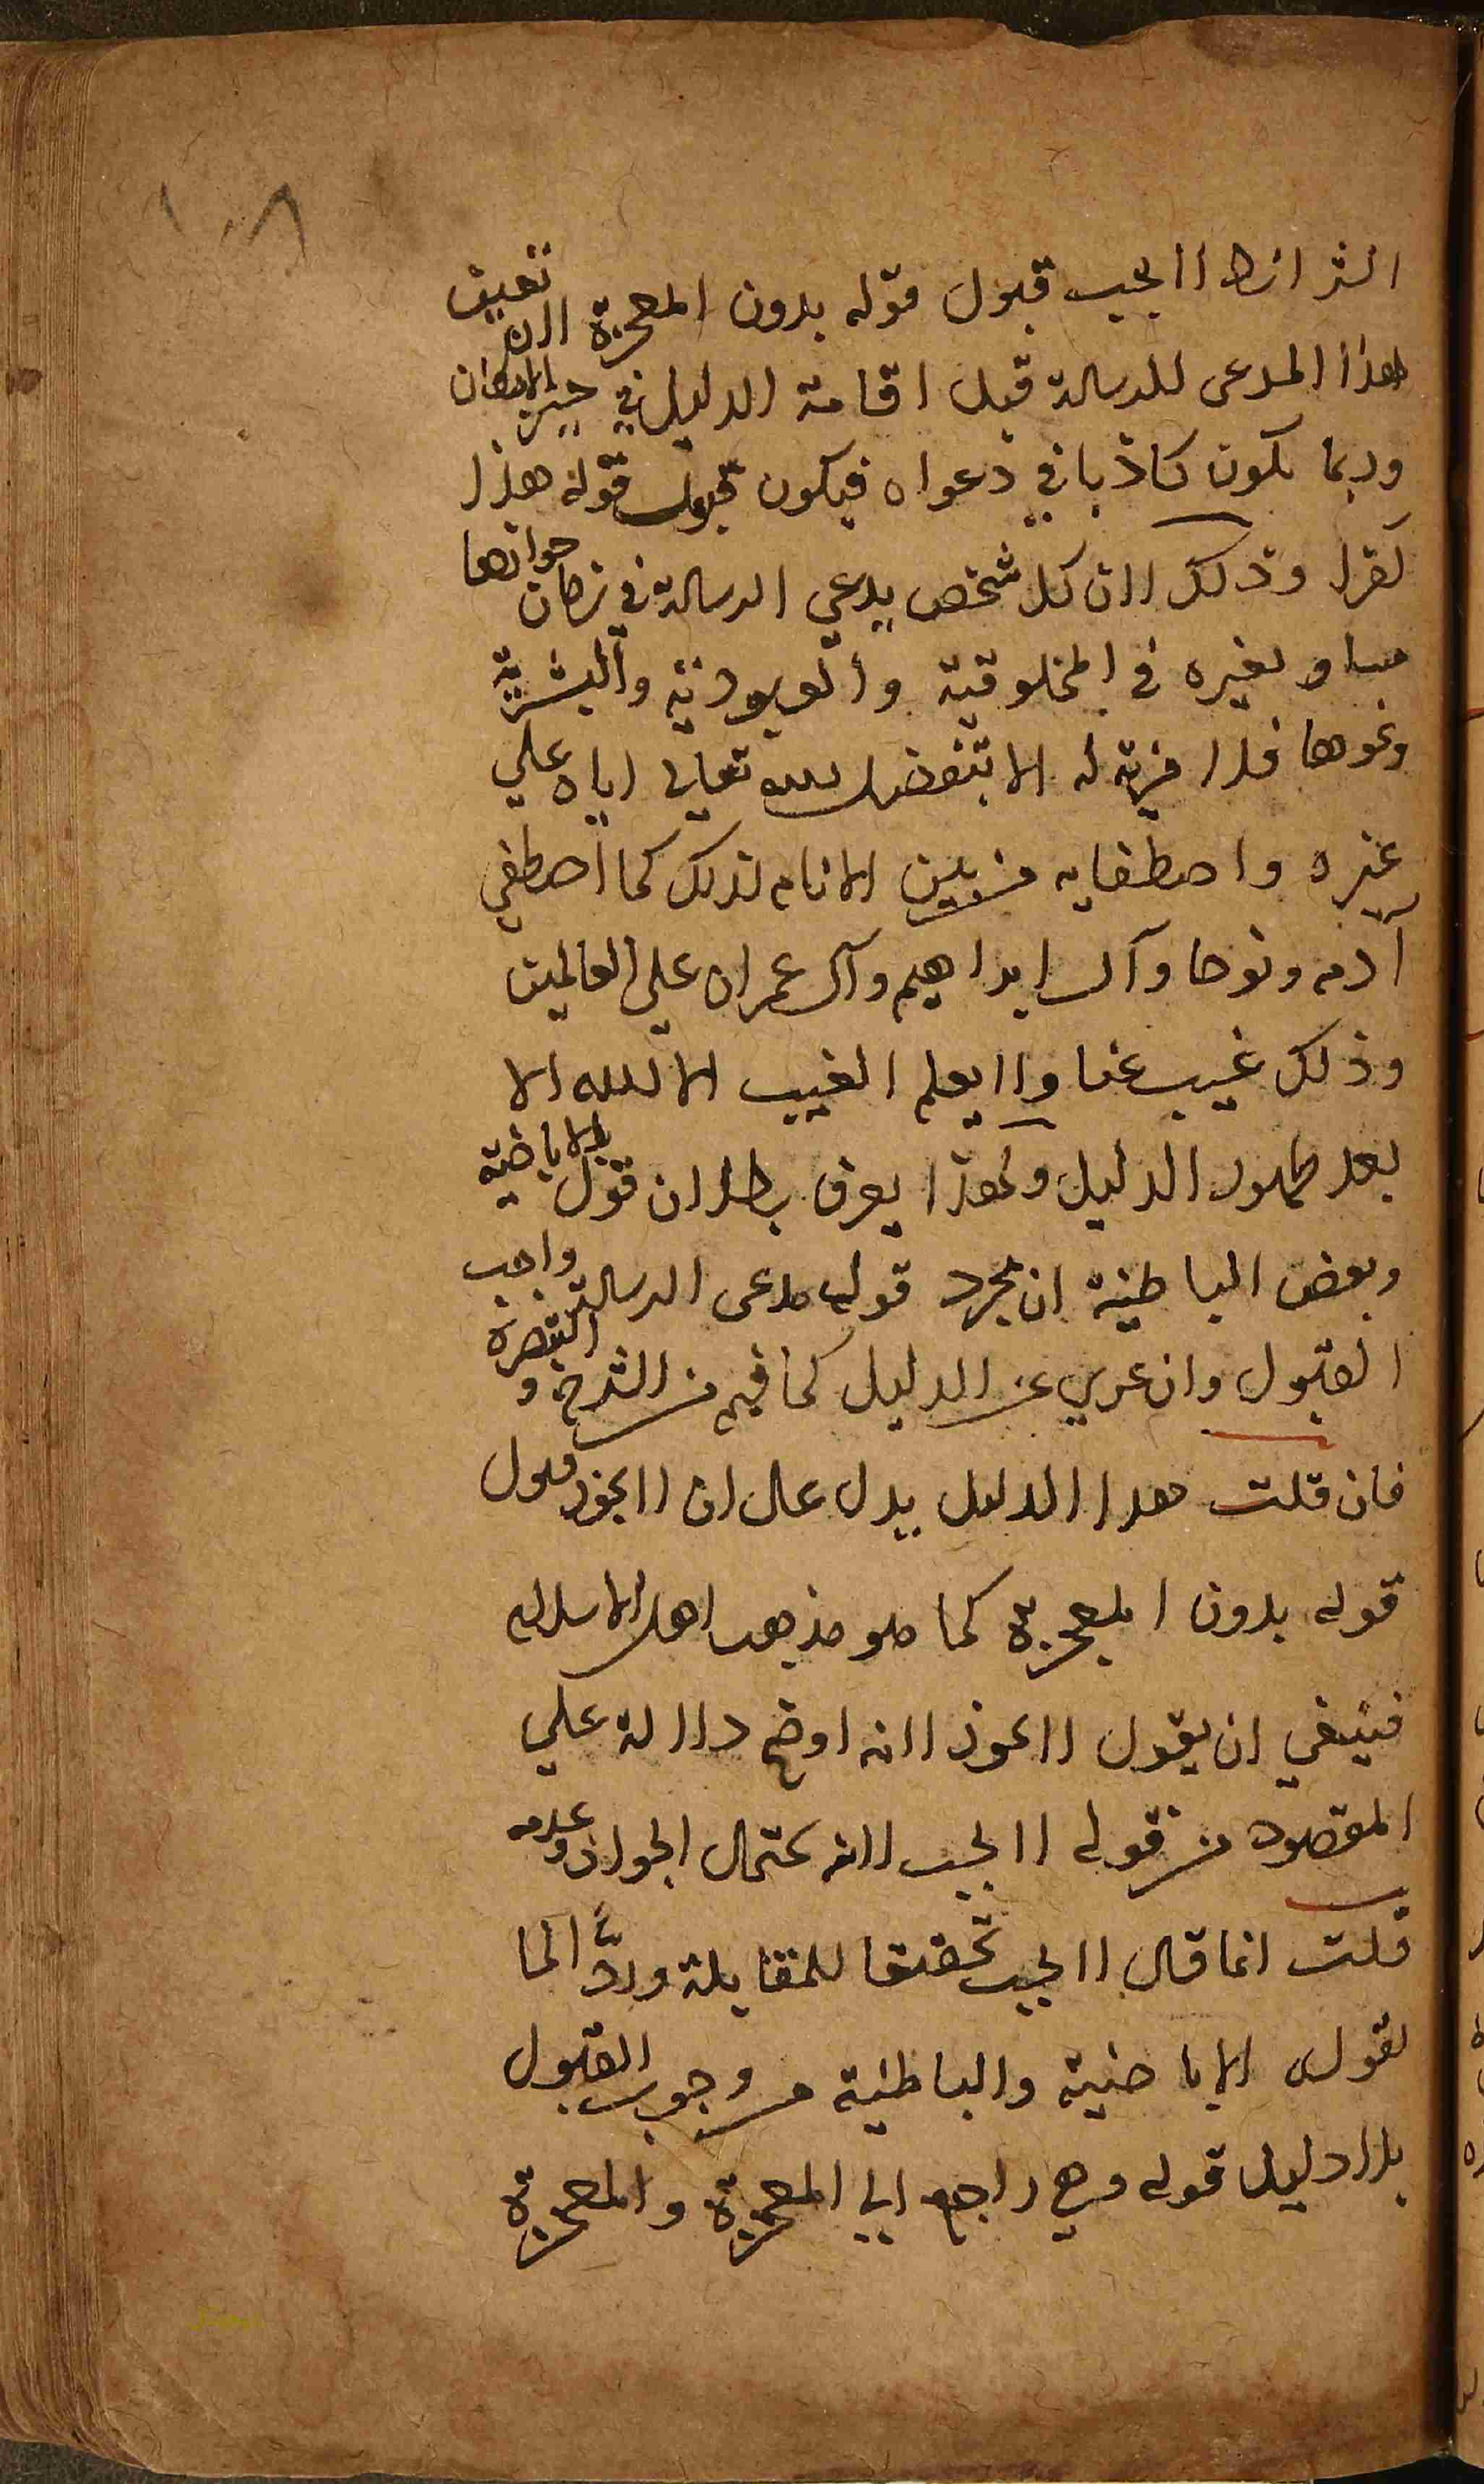 ١٠٨
الشرائط لا يجب قبول قوله بدون المعجزة لان تعيين
هذا المدعى للرسالة قبل اقامة الدليل في حيز الامكان
وربما يكون كاذبا في دعواه فيكون قبول قوله هذا
كفرا وذلك لان كل شخص يدعي الرسالة في زمان جوازها
مساو لغيره في المخلوقية والعبودية والبشرية
ونحوها فلا مزية له الا بتفضيل الله تعالى اياه علي
غيره واصطفايه من بين الانام لذلك كما اصطفي
آدم ونوحا وآل ابراهيم وآل عمران على العالمين
وذلك غيب عنا ولا يعلم الغيب الا الله الا
بعد ظهور الدليل ولهذا يعرف بطلان قول الاباضية
وبعض الباطنية ان مجرد قول مدعى الرسالة واجب
القبول وان عري عن الدليل كما فيم من الشرح و التبصرة
فان قلت هذا الدليل يدل على ان لا يجوز قبول
قوله بدون المعجزة كما هو مذهب اهل الاسلام
فينبغي ان يقول لا يجوز لانه اوضح دلالة علي
المقصود من قوله لا يجب لانه يحتمل الجواز وعدمه
قلت انما قال لا يجب تحقيقا للمقابلة وردًّا لما
تقول الاباضية والباطنية من وجوب القبول
بلا دليل قوله وهي راجع الي المعجزة والمعجزة